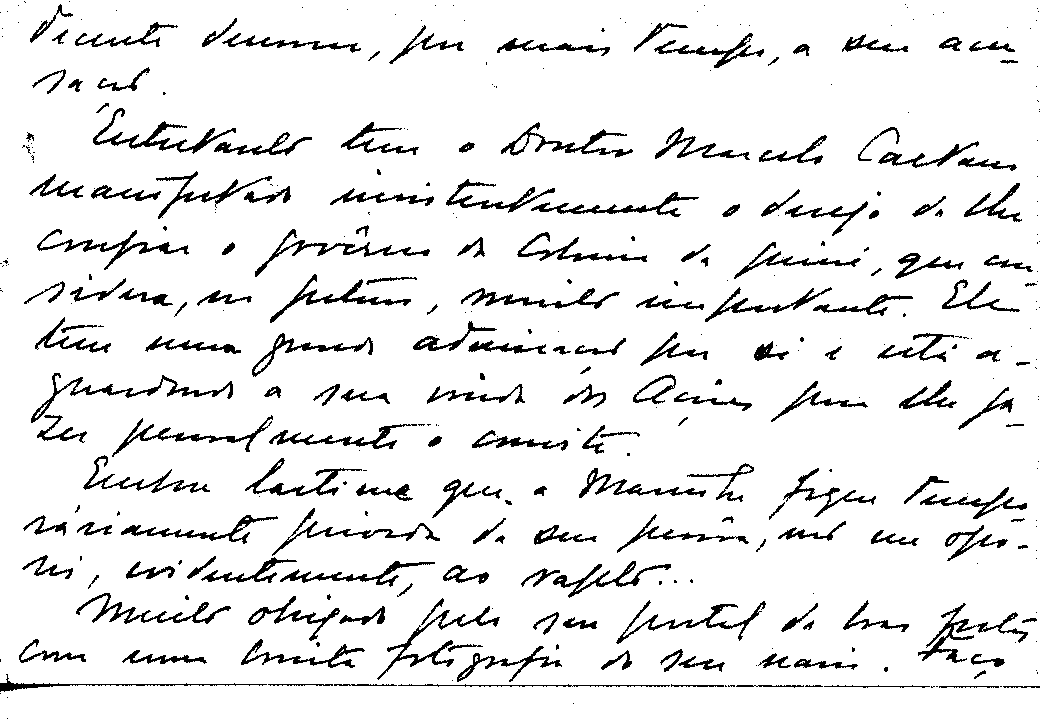 decorrer, por mais tempo, a sua acu-
sação.
Entretanto tem o Doutor Marcelo Caetano
manifestado insistentemente o desejo de lhe
confiar o govêrno da Colonia da Guiné, que con-
sidera, no futuro, muito importante. Ele
tem uma grande admiração por si e está a-
guardando a sua vinda dos Açores para lhe fa-
zer pessoalmente o convite.
Embora lastime que a Marinha fique tempo-
ràriamente privada da sua pessôa, não me opo-
rei, evidentemente, ao rapto...
Muito obrigado pelo seu postal de boas festas
com uma bonita fotografia do seu navio. Faço